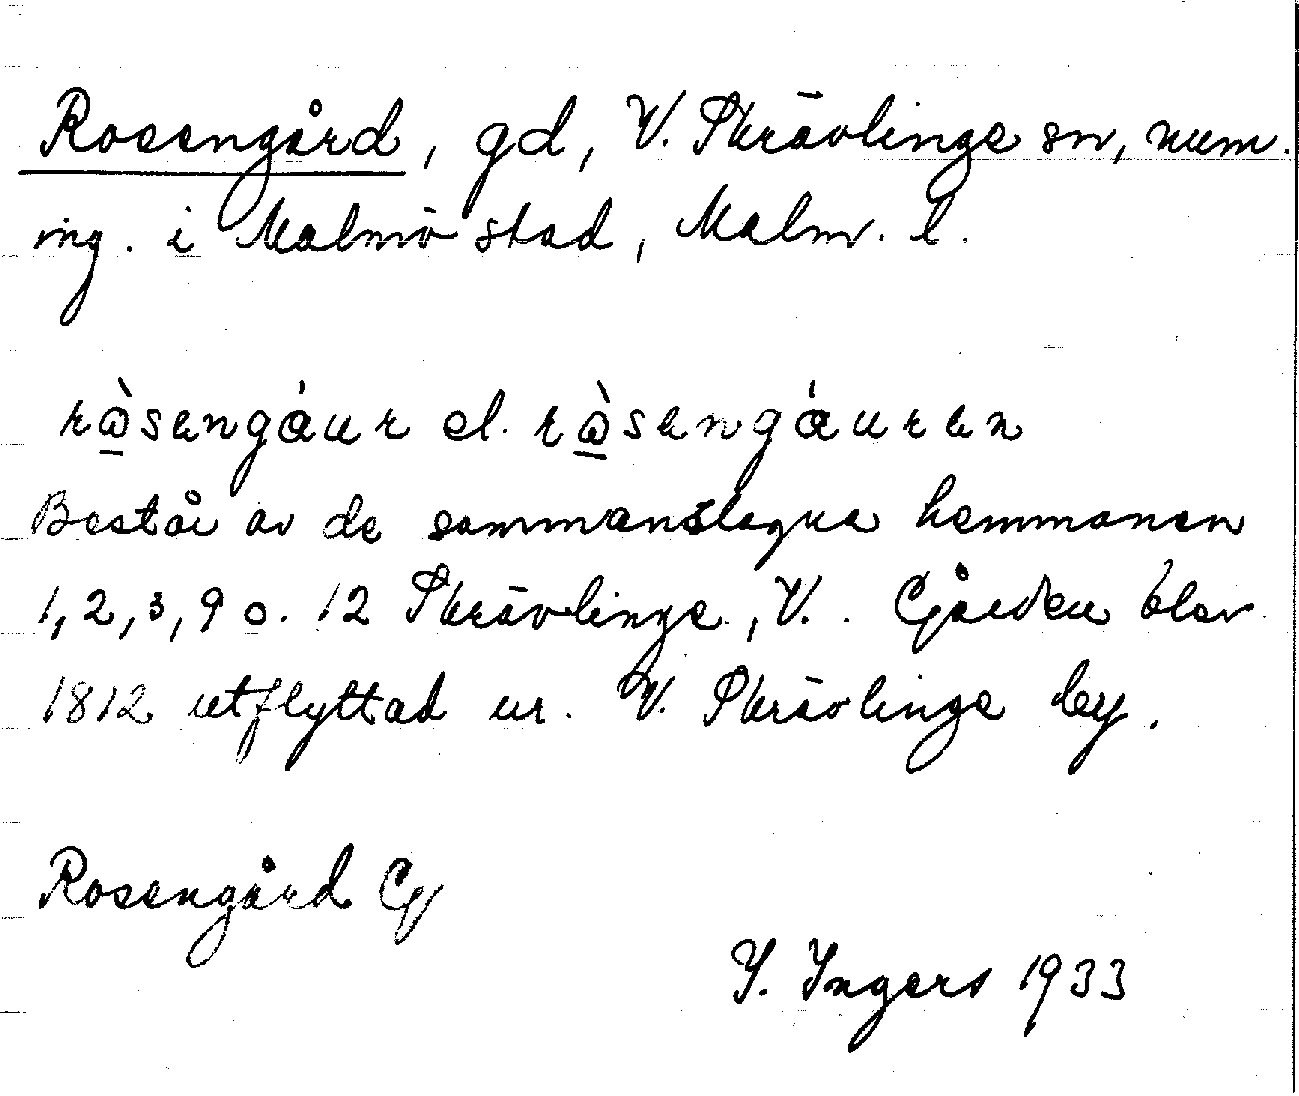 Rosengård, gd, V. Skrävlinge sn, num.
ing. i Malmö stad, Malm. l.
ròsengáur el. ròsengáuren
Består av de sammanslagna hemmanen
1, 2, 3, 9 o. 12 Skrävlinge, V. Gården blev
1812 utflyttad ur. V. Skrävlinge by.
Rosengård Gg
I. Ingers 1933